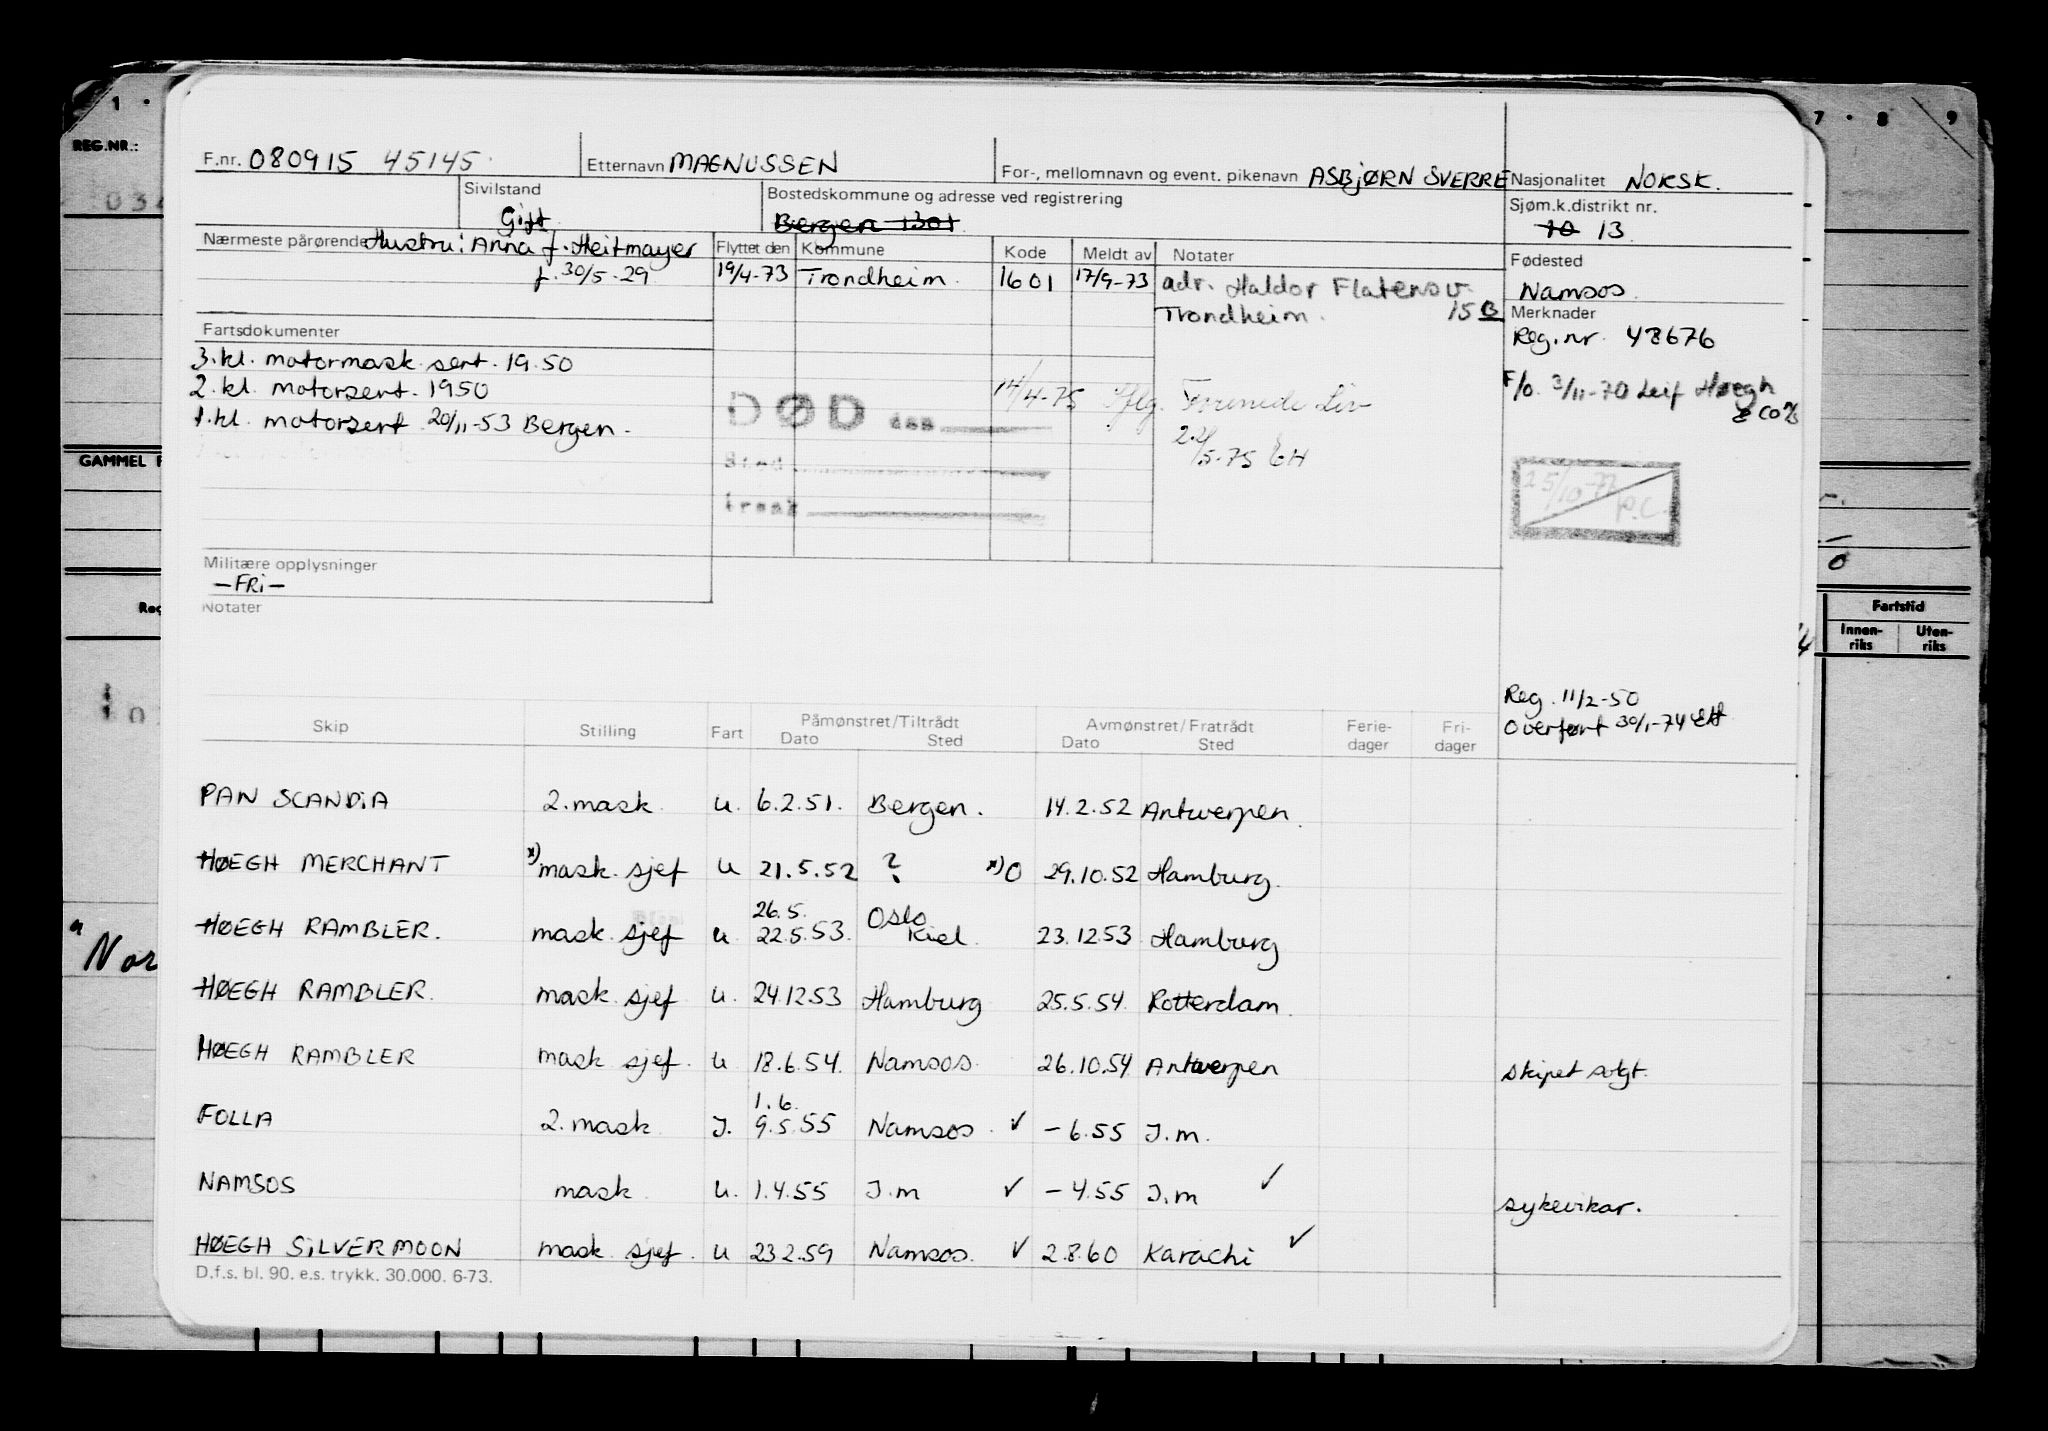 F.nr. 080915 45145. Etternavn MAGNUSSEN For-, mellomnavn og event. pikenavn ASBJØRN SVERRE Nasjonalitet NORSK.
Sivilstand Gift Bostedskommune og adresse ved registrering Bergen 1301 Sjøm.k.distrikt nr. 10 13
Nærmeste pårørende Hustru: Anna f. Heitmayer
f. 30/5-29
Flyttet den Kommune Kode Meldt av Notater
19/4-73 Trondheim. 1601 17/9-73 adr. Haldor Flatens v.
Trondheim. 15B
Fødested
Namsos.
Merknader
Reg.nr. 48676
F/o. 3/11-70 Leif Høegh
& CO %
Fartsdokumenter
3.kl. motormask. sert. 1950
2.kl. motorsert. 1950
1.kl. motorsert 20/11-53 Bergen.
DØD den
Sted
trask
14/4-75 Iflg. Forenede Liv
22/5-75 EH
25/10-77
P.C.
Militære opplysninger
-FRi-
Notater
Reg. 11/2-50
Overført 30/1-74 EH
Skip Stilling Fart Påmønstret/Tiltrådt Dato Sted Avmønstret/Fratrådt Dato Sted Ferie-dager Fri-dager
PAN SCANDiA 2.mask. u. 6.2.51. Bergen. 14.2.52 Antwerpen.
HØEGH MERCHANT x) mask. sjef u 21.5.52 ? x) O 29.10.52 Hamburg.
26.5. Oslo
HØEGH RAMBLER. mask. sjef u. 22.5.53. Kiel. 23.12.53 Hamburg
HØEGH RAMBLER. mask. sjef u. 24.12.53 Hamburg 25.5.54. Rotterdam.
HØEGH RAMBLER mask. sjef. u 18.6.54. Namsos. 26.10.54 Antwerpen skipet solgt.
1.6.
FOLLA 2.mask. J. 9.5.55 Namsos. ✓ - 6.55 J.m.
NAMSOS mask. u. 1.4.55 J.m ✓ - 4.55 J.m ✓ sykevikar.
HØEGH SiLVERMOON mask. sjef. u 23.2.59 Namsos. ✓ 2.8.60 Karachi ✓
D.f.s. bl. 90. e.s. trykk. 30.000. 6-73.
1 ·
7 · 8 9
REG.NR.:
GAMMEL
Fartstid
Innen-riks Uten-riks
"Nor